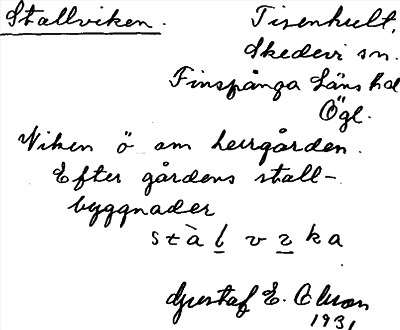 Stallviken. Tisenhult,
Skedevi sn.
Finspånga Läns hd
Ögl.
Viken ö om herrgården.
Efter gårdens stall-
byggnader
stàlvıka
Gustaf E. Olsson
1931